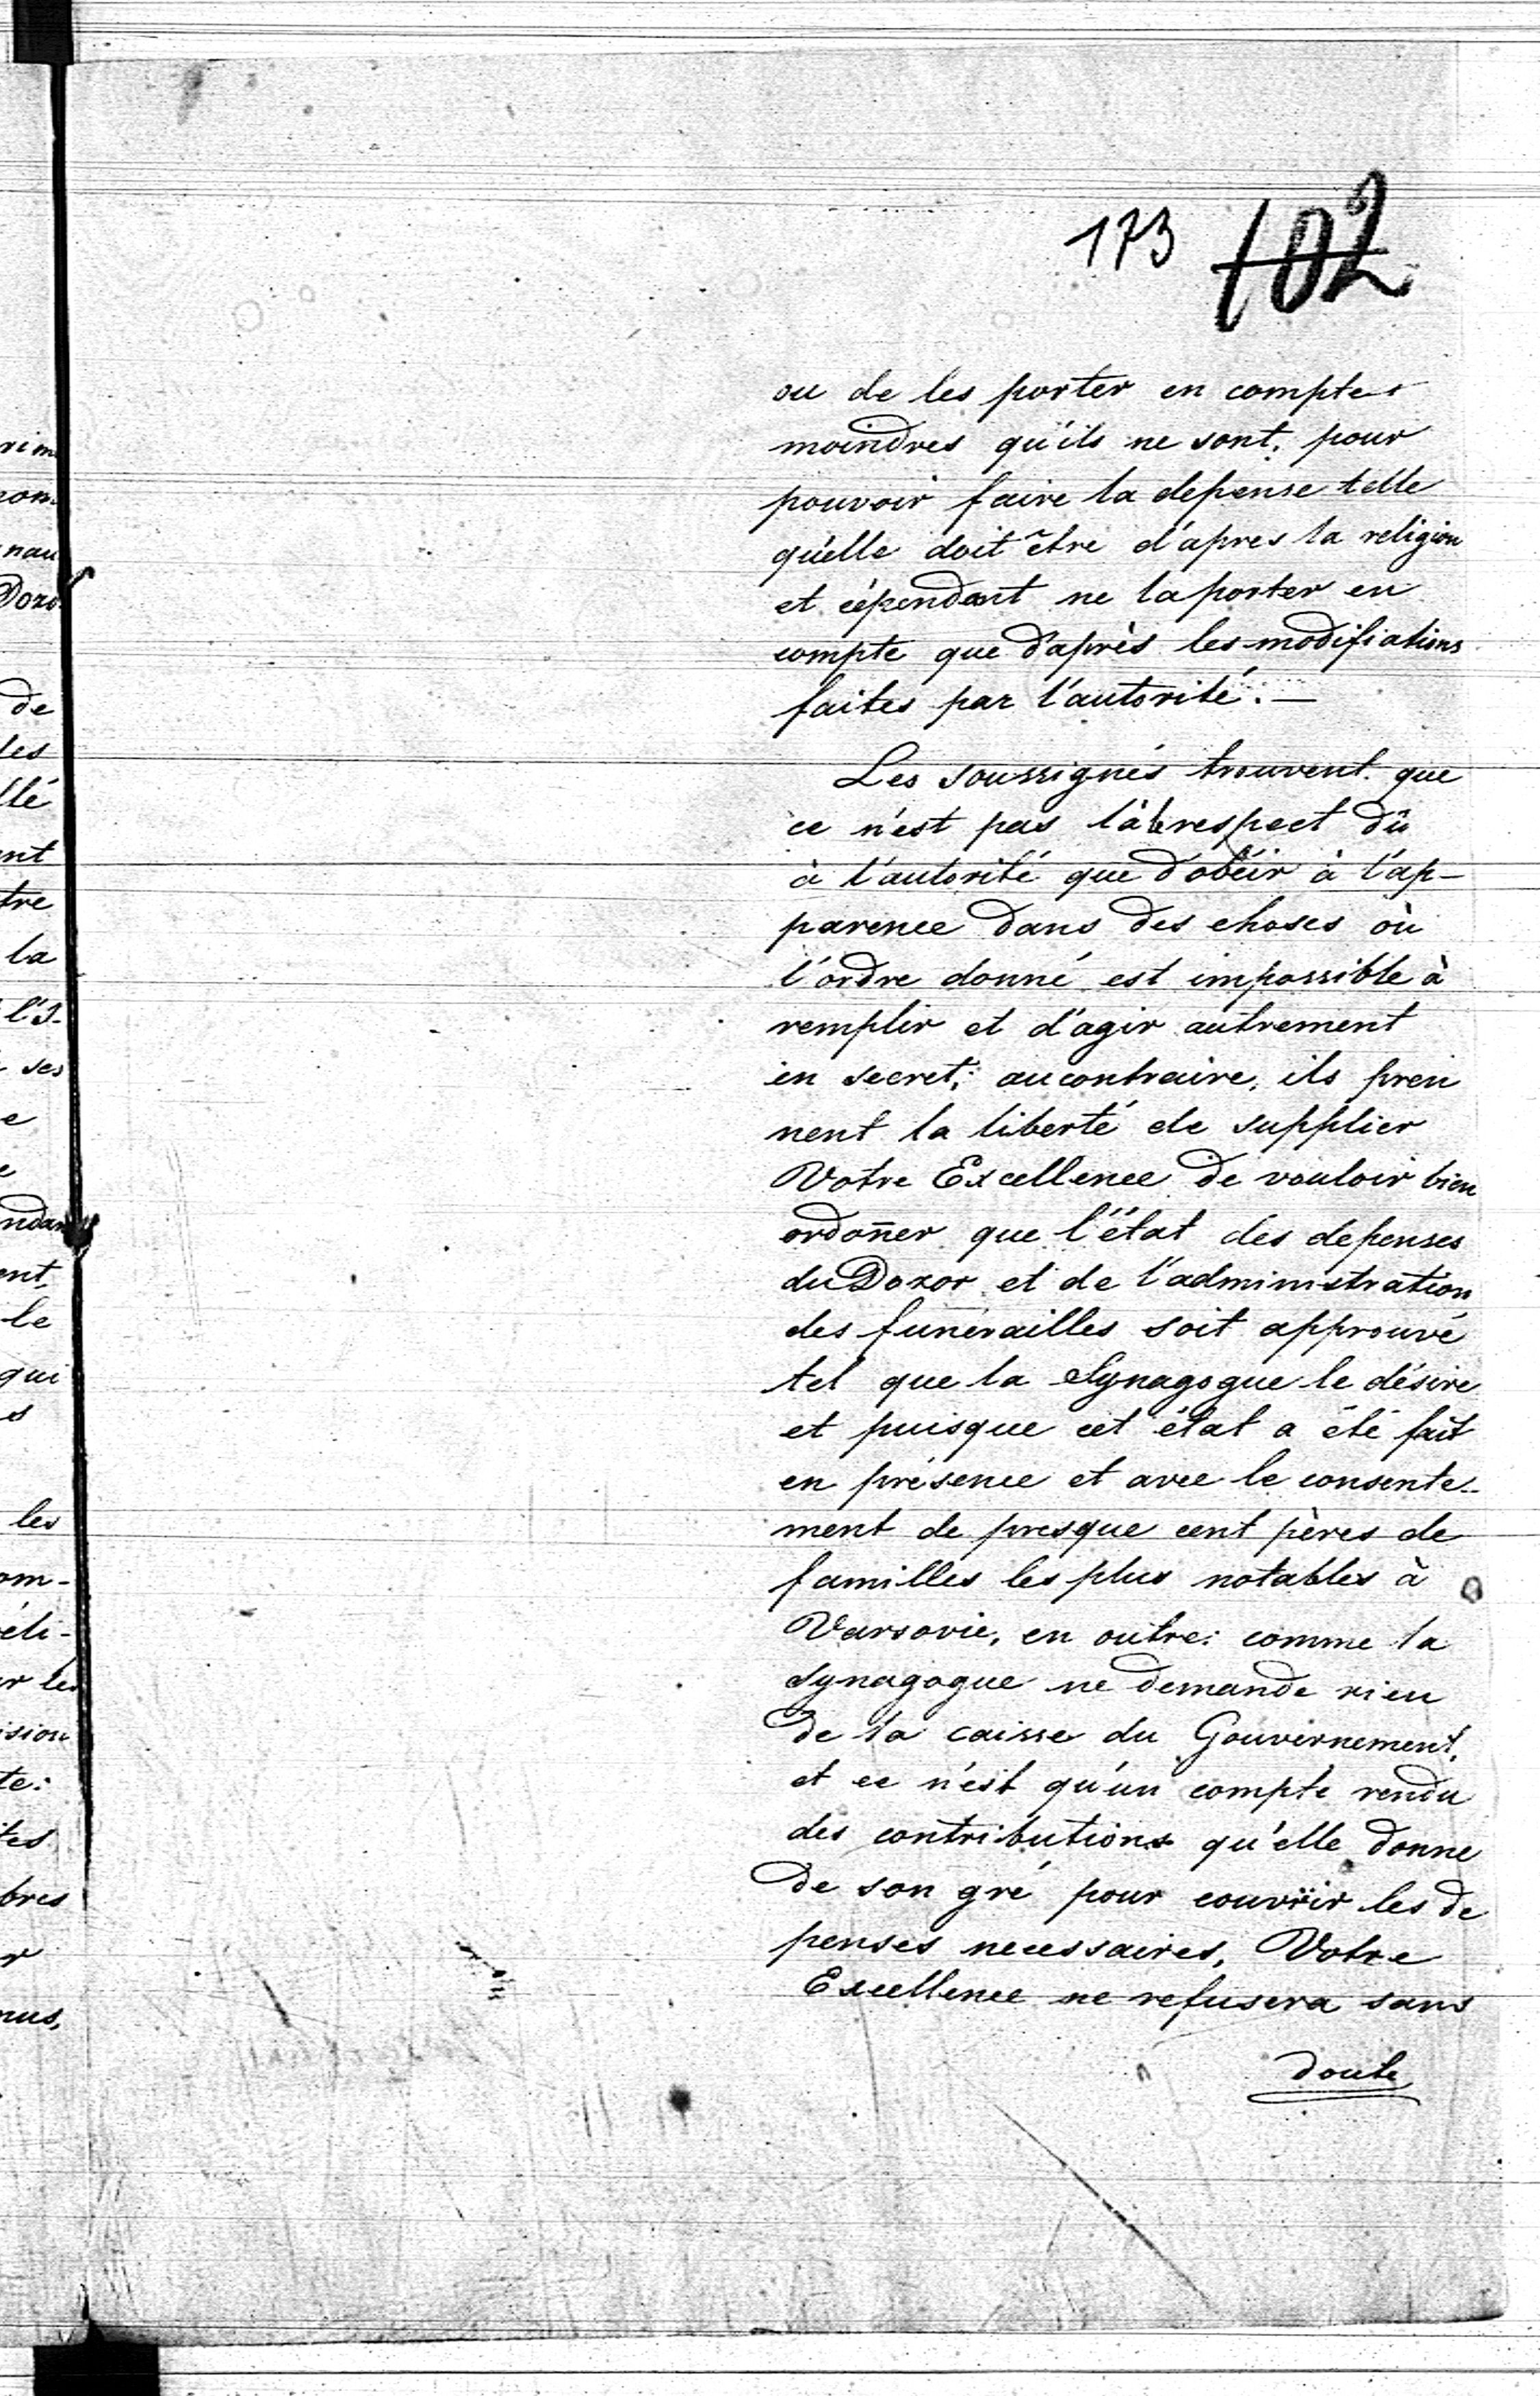 173 102
ou de les porter en compte
moindres qu'ils ne sont, pour
pouvoir faire la depense telle
qu'elle doit être d'apres la religion
et cépendant ne la porter en
compte que d'après les modifiations
faites par l'autorité. —
Les soussignés trouvent que
ce n'est pas là le respect dû
à l'autorité que d'obéir à l'ap-
parence dans des choses où
l'ordre donné est impossible à
remplir et d'agir autrement
en secret; au contraire, ils pren
nent la liberté de supplier
Votre Excellence de vouloir bien
ordoñer que l'état des depenses
du Dozor et de l'administration
des funerailles soit approuvé
tel que la Synagogue le désire
et puisque cet état a été fait
en présence et avec le consente-
ment de presque cent pères de
familles les plus notables à
Varsovie, en outre: comme la
Synagogue ne demande rien
de la caisse du Gouvernement,
et ce n'est qu'un compte rendu
des contributions qu'elle donne
de son gré pour couvrir les de
penses necessaires, Votre
Excellence ne refusera sans
doute
rim
nau
Dozo
de
les
llé
ent
tre
la
l'I-
ses
e
e
ndan
ent,
le
qui
s
les
om-
éli-
r les
ision
te:
tes
bres
r
nus,